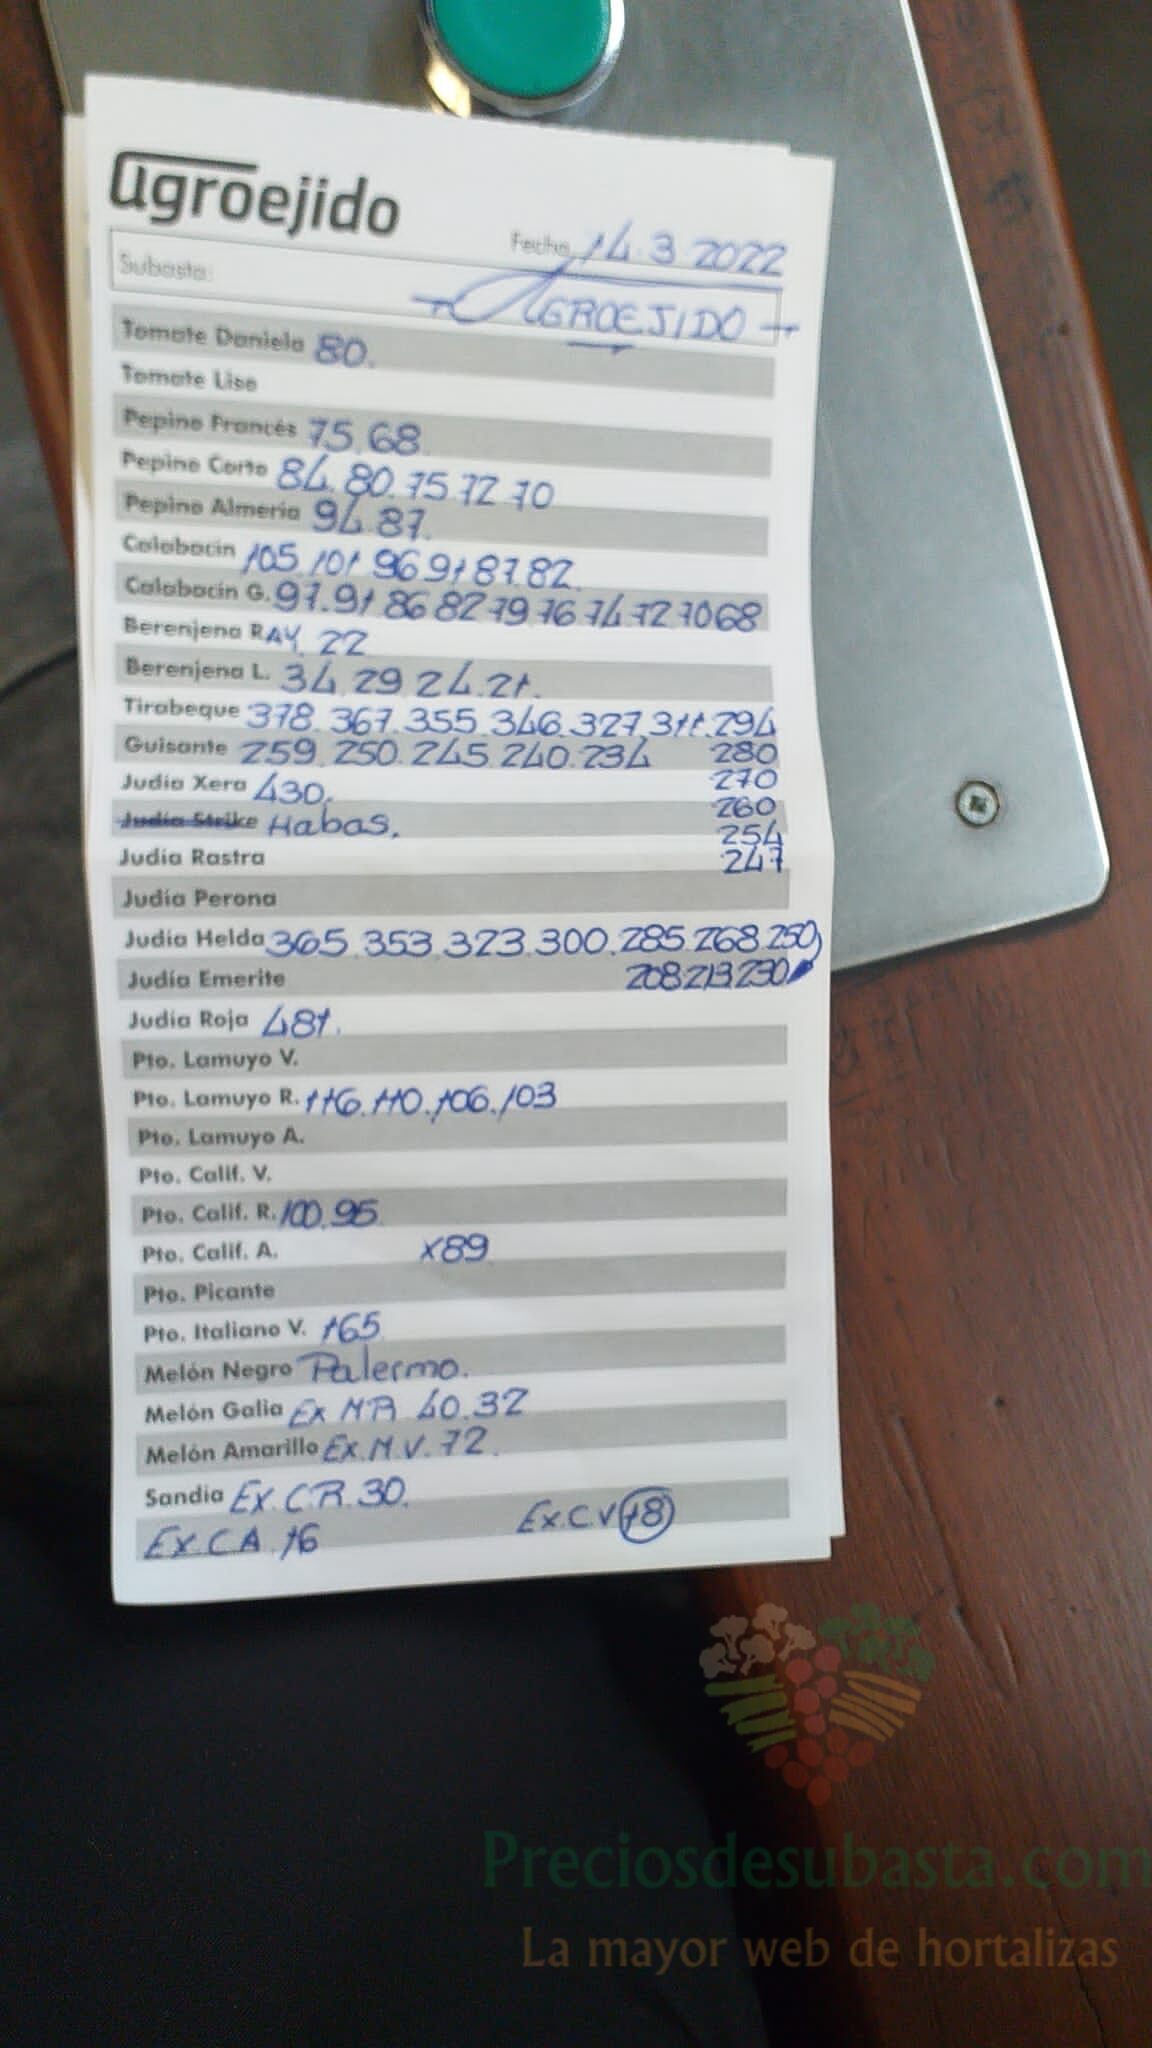 agroejido
Fecha 14.3.2022
Subasta: AGROEJIDO
Tomate Daniela 80.
Tomate Liso
Pepino Francés 75.68
Pepino Corto 84.80.75 72 70
Pepino Almeria 94.87.
Calabacín 105.101 96 91 87 82.
Calabacín G. 97.91 86 82 79 76 74 72 70 68
Berenjena RAY. 22
Berenjena L. 34.29 24.21.
Tirabeque 378.367.355.346.327.311.294
Guisante 259.250.245.240.234 280
270
Judía Xera 430.
260
Judía Strike Habas.
254
Judía Rastra 247
Judía Perona
Judía Helda 365.353.323.300.285.268.250
Judía Emerite 208 213 230
Judía Roja 481.
Pto. Lamuyo V.
Pto. Lamuyo R. 116.110.106.103
Pto. Lamuyo A.
Pto. Calif. V.
Pto. Calif. R. 100.95
Pto. Calif. A. x89
Pto. Picante
Pto. Italiano V. 165
Melón Negro Palermo.
Melón Galia Ex MR 40.32
Melón Amarillo Ex.M.V.72.
Sandia Ex.C.R.30.
Ex.C.A.16 Ex.C.V 18
Preciosdesubasta.com
La mayor web de hortalizas